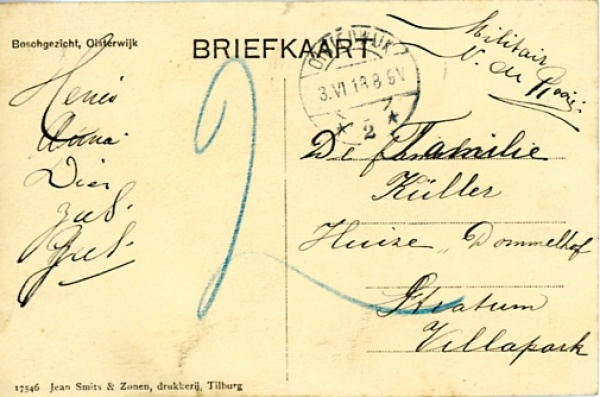 Boschgezicht, Oisterwijk
BRIEFKAART
OISTERWIJK
3.VI.18.8-9V
2
Militair
v. de Rooij.
Henis
Anna.
Dien
Jul.
2
De Familie
Küller
Huize „Dommelhof
Stratum
Villapark
17546 Jean Smits & Zonen, drukkerij, Tilburg